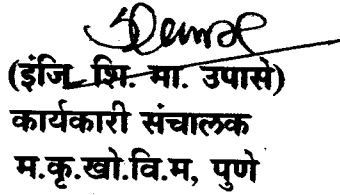 (इंजि. शि. मा. उपासे)
कार्यकारी संचालक
म.कृ.खो.वि.म, पुणे